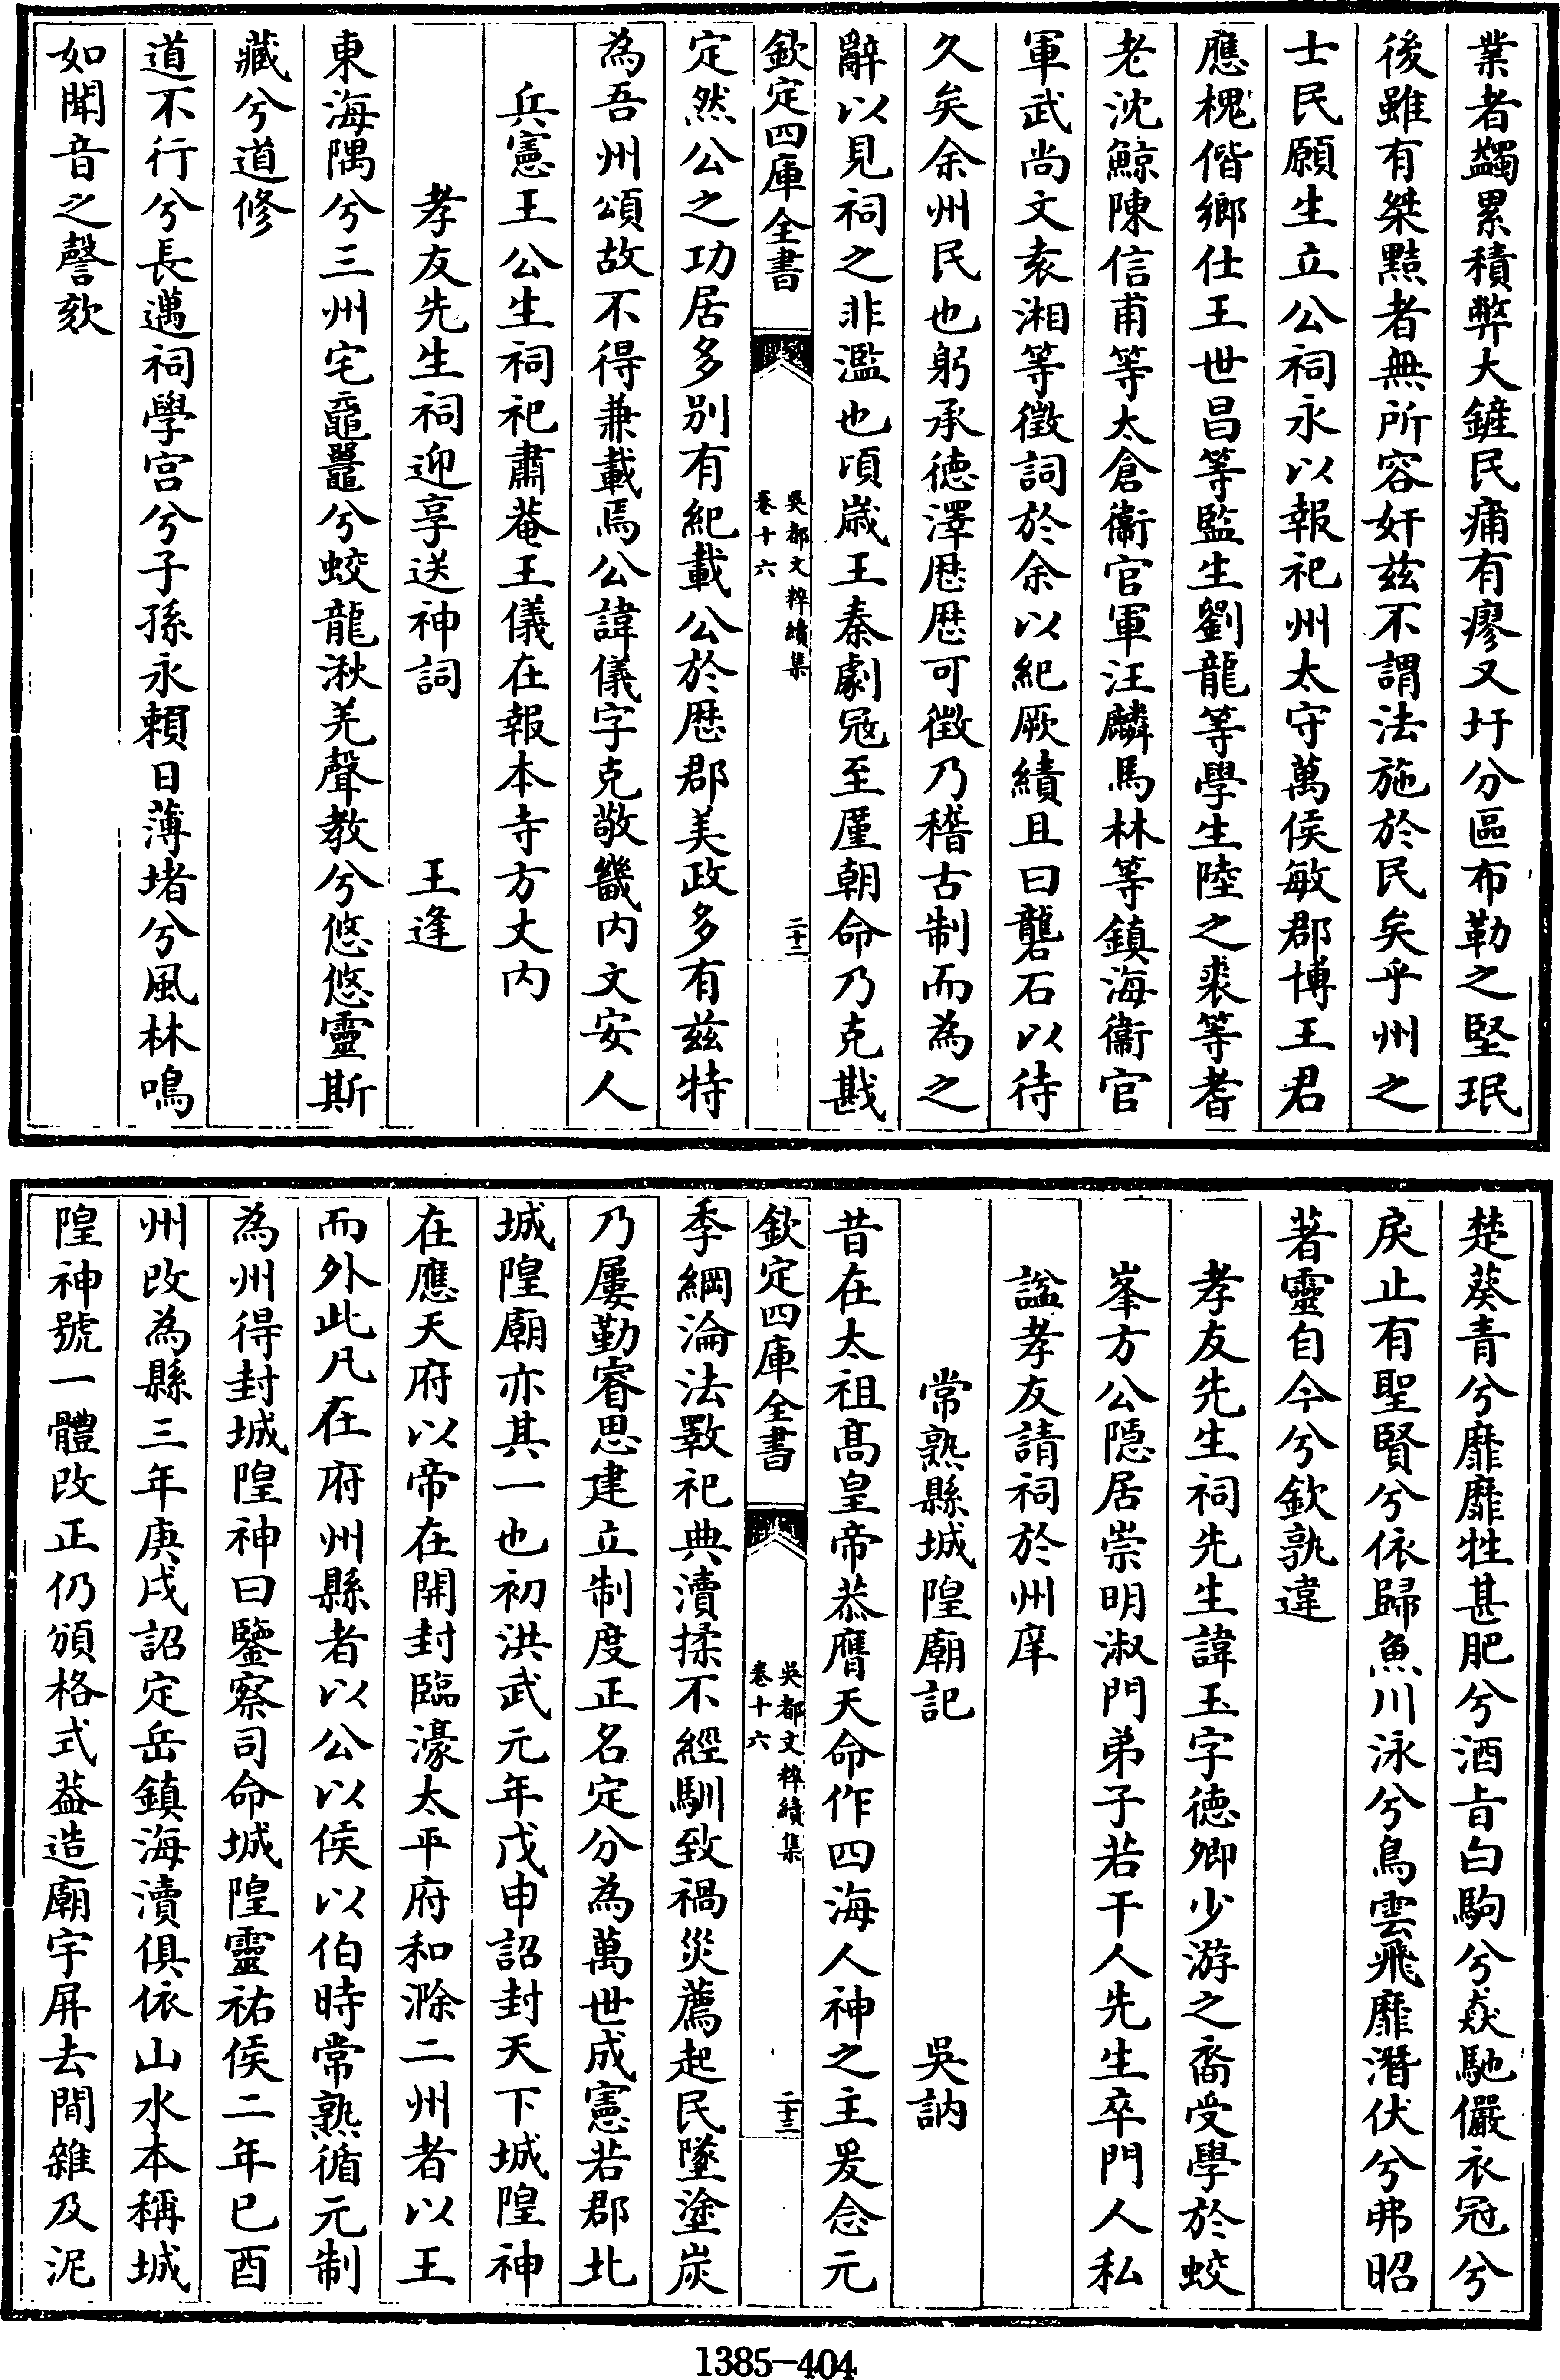 業者蠲累積弊大鏟民痡有瘳又圩分區布勒之堅珉
後雖有桀黠者無所容奸兹不謂法施於民矣乎州之
士民願生立公祠永以報祀州太守萬侯敏郡博王君
應槐偕鄉仕王世昌等監生劉龍等學生陸之裘等耆
老沈鯨陳信甫等太倉衞官軍汪麟馬林等鎮海衞官
軍武尚文袁湘等徵詞於余以紀厥績且曰礱石以待
久矣余州民也躬承徳澤歴歴可徴乃稽古制而為之
辭以見祠之非濫也頃嵗王秦劇冦至厪朝命乃克戡
欽定四庫全書
吳都文粹續集
卷十六
二十二
定然公之功居多别有紀載公於歴郡美政多有兹特
為吾州頌故不得兼載焉公諱儀字克敬畿内文安人
兵憲王公生祠祀肅菴王儀在報本寺方丈内
孝友先生祠迎享送神詞 王逢
東海隅兮三州宅黿鼉兮蛟龍湫羌聲教兮悠悠靈斯
藏兮道修
道不行兮長邁祠學宫兮子孫永賴日薄堵兮風林鳴
如聞音之謦欬
楚葵青兮靡靡牲甚肥兮酒旨白駒兮猋馳儼衣冠兮
戾止有聖賢兮依歸魚川泳兮鳥雲飛靡潛伏兮弗昭
著靈自今兮欽孰違
孝友先生祠先生諱玉字徳卿少游之裔受學於蛟
峯方公隱居崇明淑門弟子若干人先生卒門人私
諡孝友請祠於州庠
常熟縣城隍廟記 吳訥
昔在太祖髙皇帝恭膺天命作四海人神之主爰念元
欽定四庫全書
吳都文粹續集
卷十六
二十三
季綱淪法斁祀典瀆揉不經馴致禍災薦起民墜塗炭
乃屢勤睿思建立制度正名定分為萬世成憲若郡北
城隍廟亦其一也初洪武元年戊申詔封天下城隍神
在應天府以帝在開封臨濠太平府和滁二州者以王
而外此凡在府州縣者以公以侯以伯時常熟循元制
為州得封城隍神曰鑒察司命城隍靈祐侯二年已酉
州改為縣三年庚戌詔定岳鎮海瀆俱依山水本稱城
隍神號一體改正仍頒格式葢造廟宇屏去閒雜及泥
1385-404